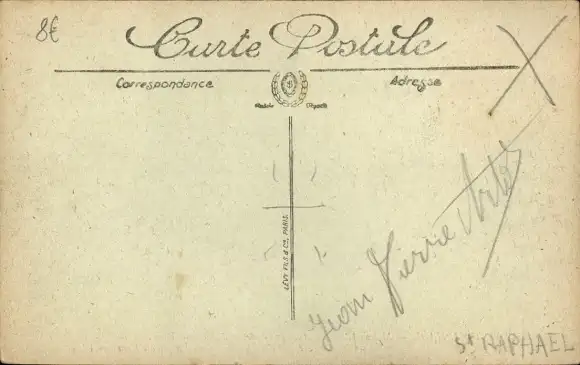 8€
Carte Postale
Correspondance
Adresse
Modèle Déposé
LÉVY FILS & Cie, PARIS.
Jean Pierre
St RAPHAEL